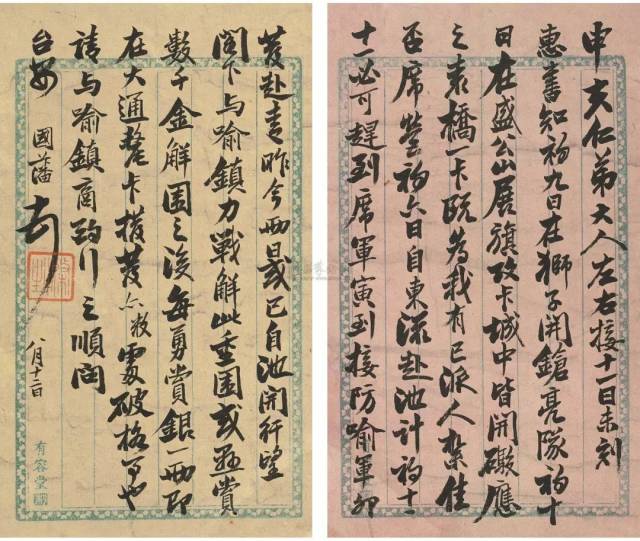 申夫仁弟大人左右接十一日未刻
惠書知初九日在獅子開鎗亮隊初十
日在盛公山展旗攻卡城中皆開礮應
之袁橋一卡既為我有已派人紮住
否席營初六日自東流赴池計初十
十一必可趕到席軍寅到接防喻軍卯
發赴青昨今兩日或已自池開行望
閣下与喻鎮力戰解此重圍或懸賞
數千金解圍之後每勇賞銀一兩即
在大通釐卡撥發亦敝處破格可也
請与喻鎮商酌行之順問
台安 國藩 頓
八月十二日
有容堂